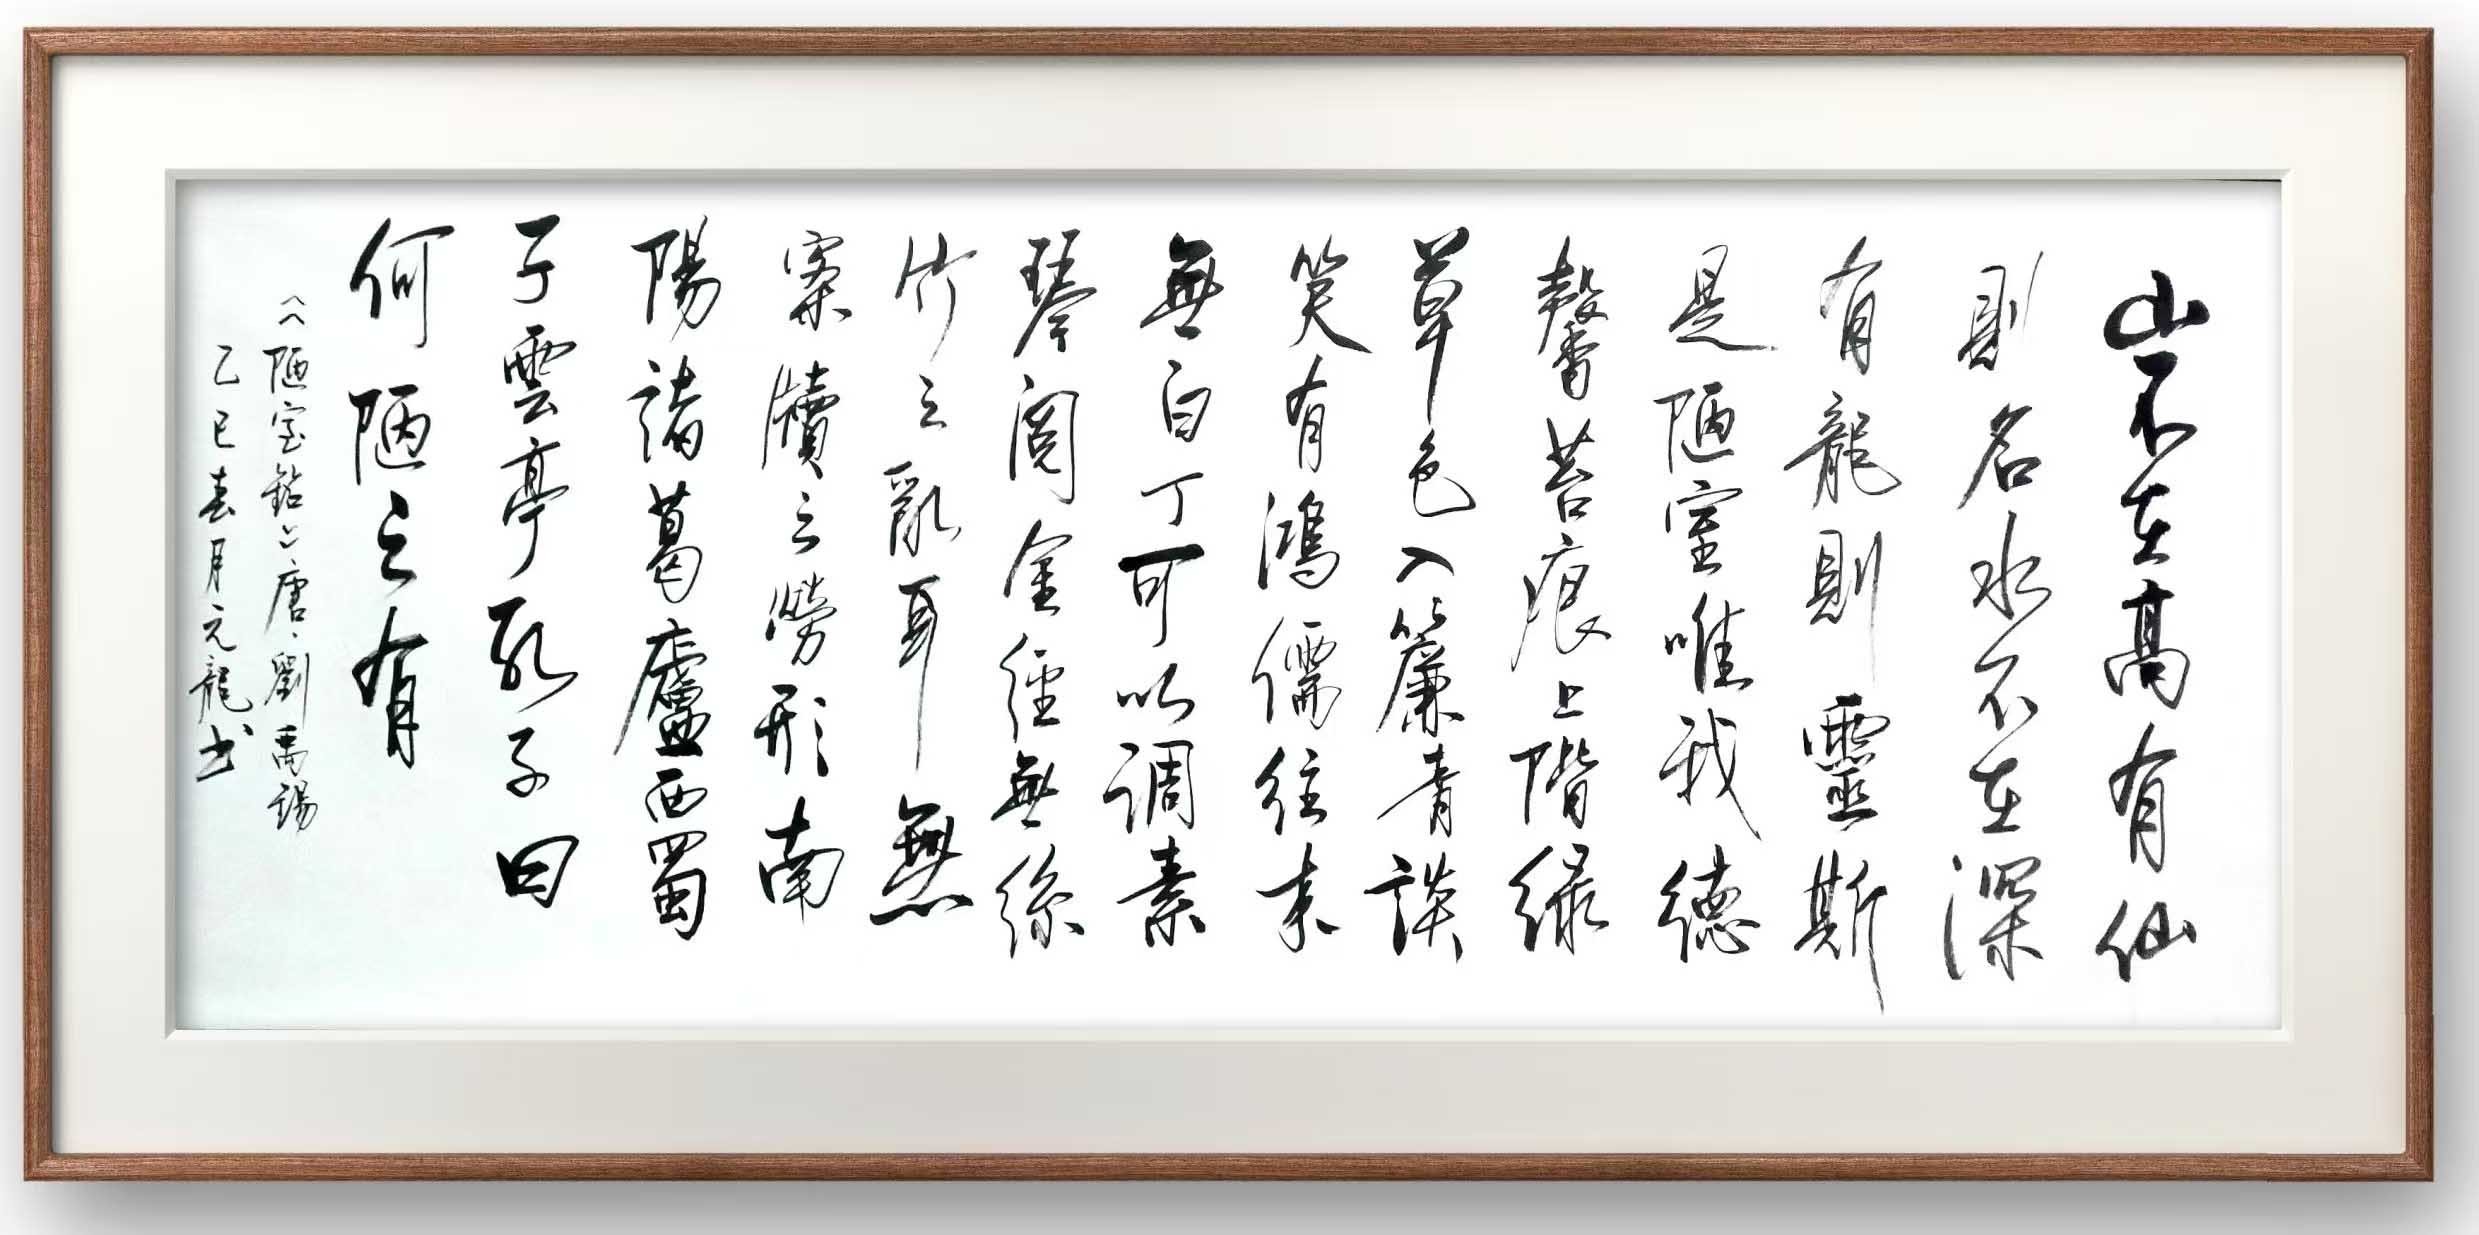 山不在高有仙
則名水不在深
有龍則靈斯
是陋室唯我德
馨苔痕上階緑
草色入簾青談
笑有鴻儒往来
無白丁可以调素
琴閲金經無絲
竹之亂耳無
案牘之勞形南
陽諸葛廬西蜀
子雲亭孔子曰
何陋之有
《陋室銘》唐·劉禹錫
乙巳春月元龍书